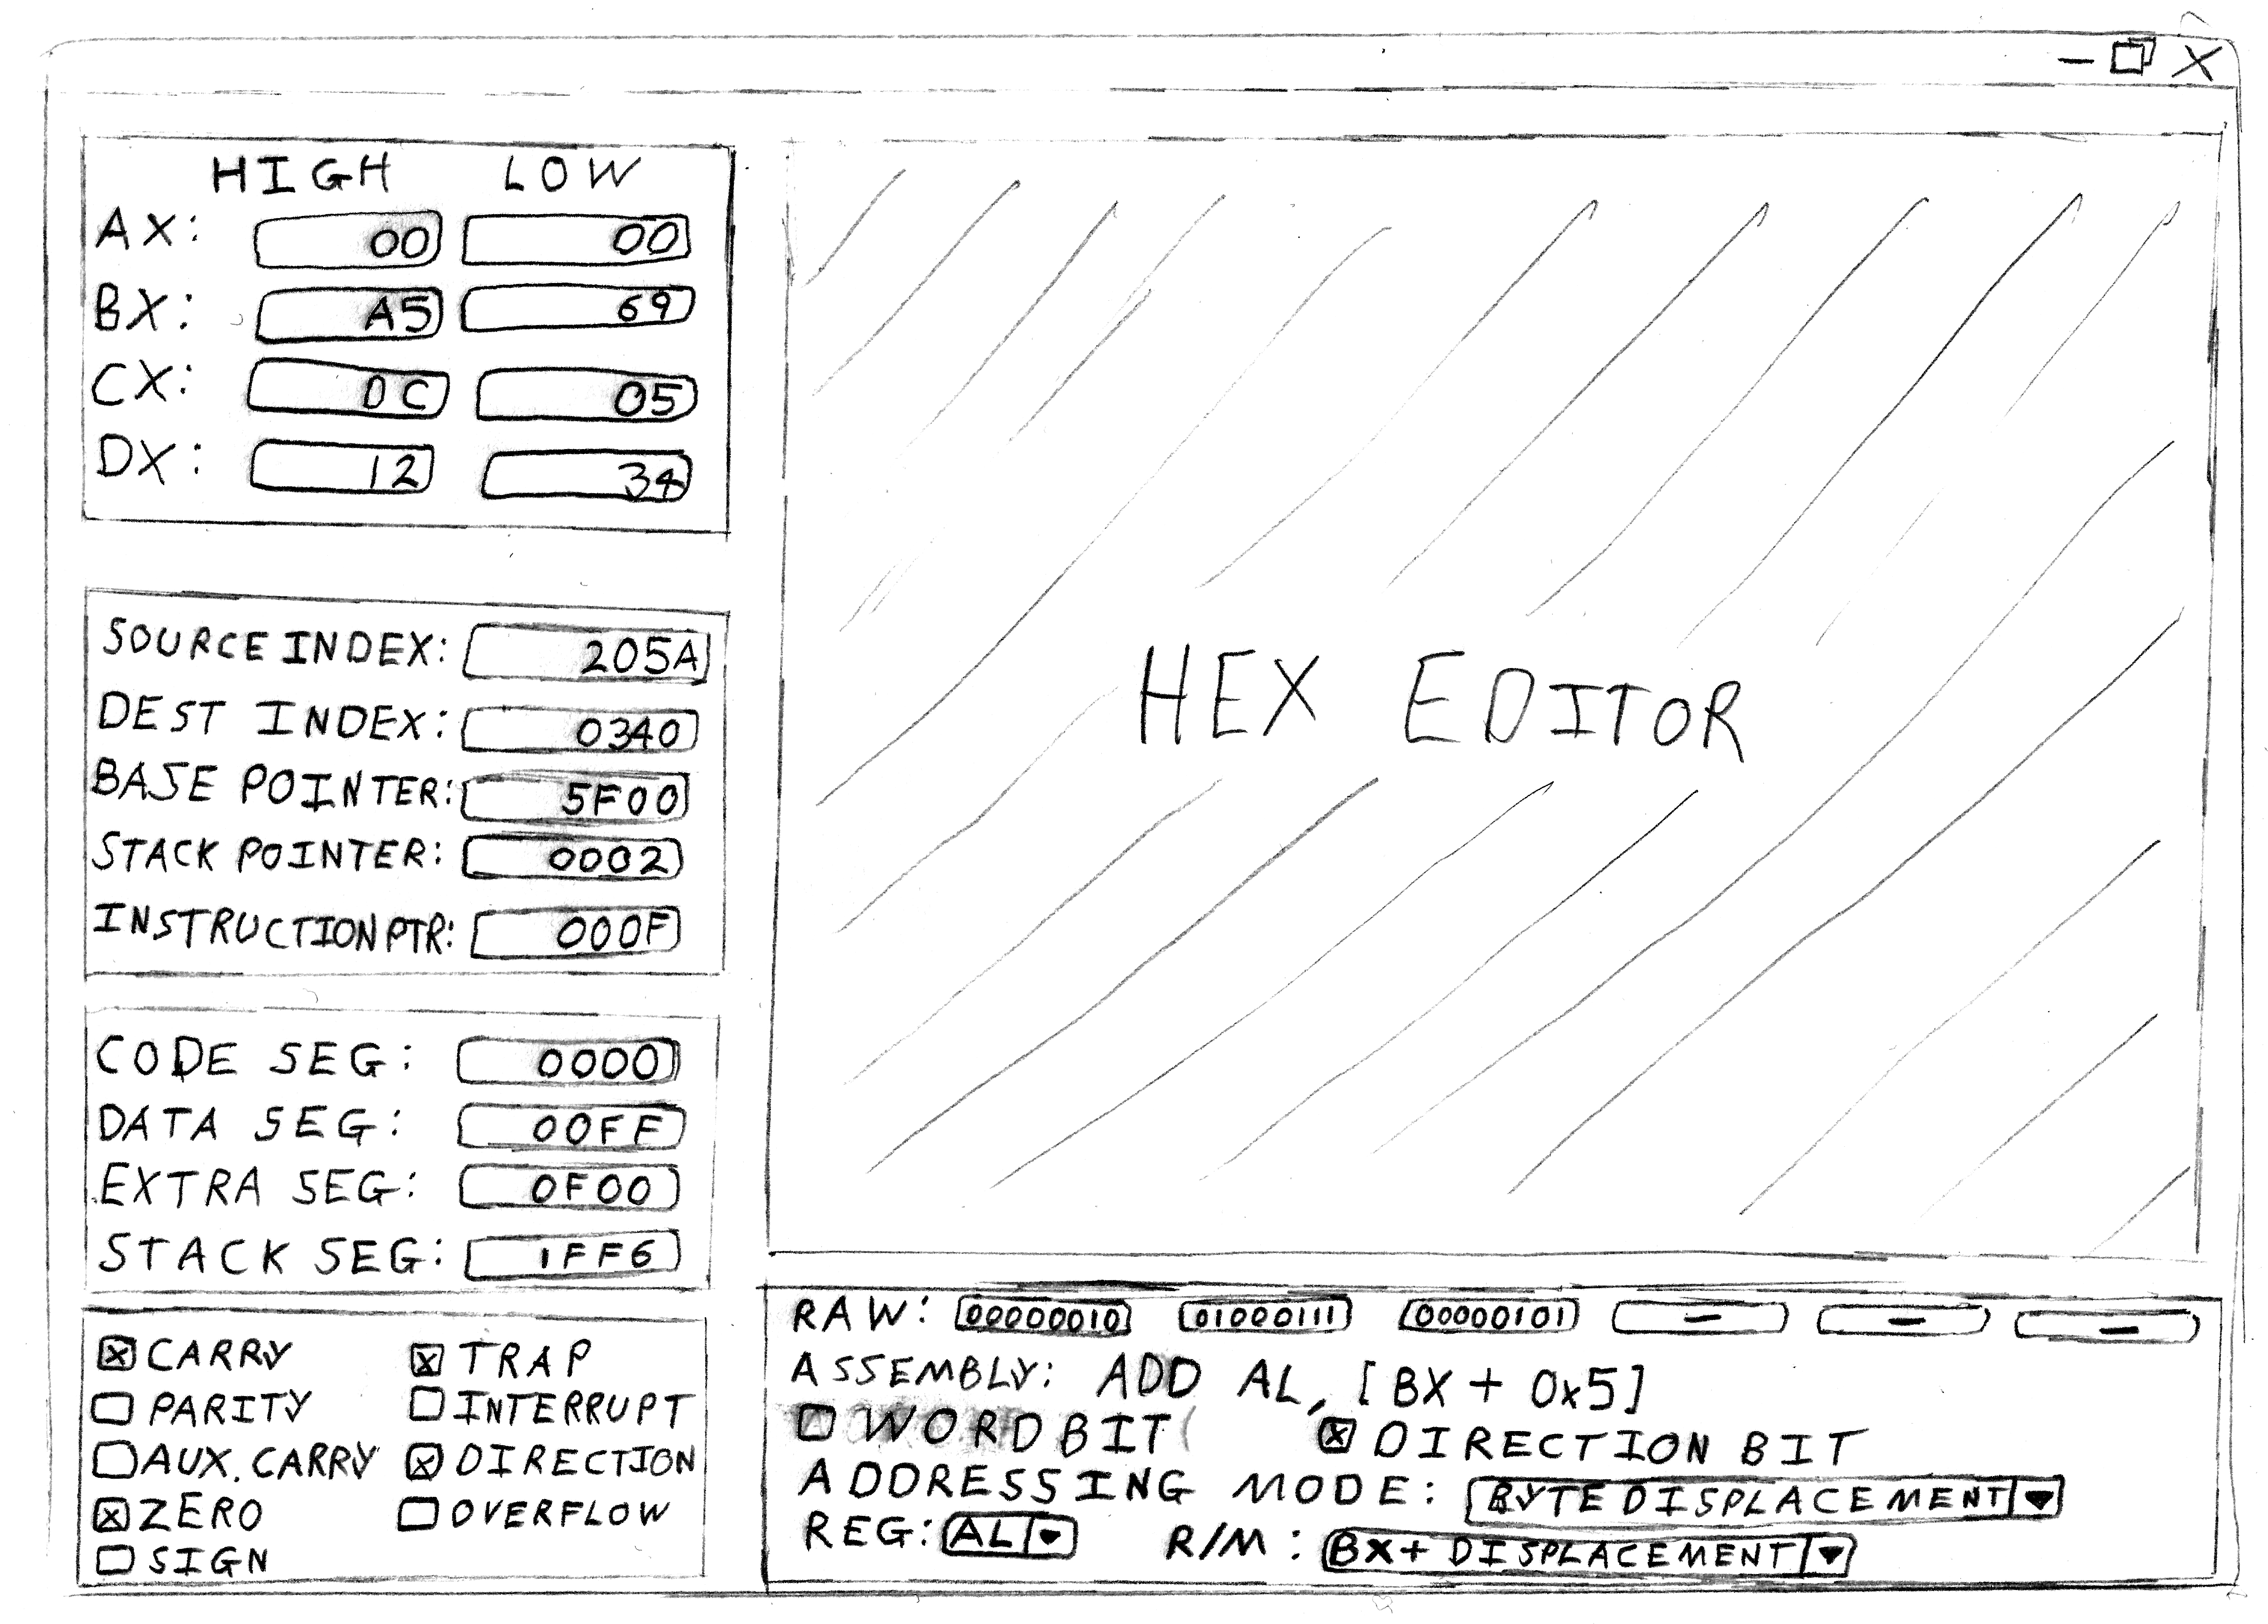 HIGH LOW
AX: 00 00
BX: A5 69
CX: 0C 05
DX: 12 34
SOURCE INDEX: 205A
DEST INDEX: 0340
BASE POINTER: 5F00
STACK POINTER: 0002
INSTRUCTION PTR: 000F
CODE SEG: 0000
DATA SEG: 00FF
EXTRA SEG: 0F00
STACK SEG: 1FF6
CARRY TRAP
PARITY INTERRUPT
AUX. CARRY DIRECTION
ZERO OVERFLOW
SIGN
HEX EDITOR
RAW: 00000010 01000111 00000101 - - -
ASSEMBLY: ADD AL, [BX + 0x5]
WORD BIT DIRECTION BIT
ADDRESSING MODE: BYTE DISPLACEMENT
REG: AL R/M: BX+ DISPLACEMENT